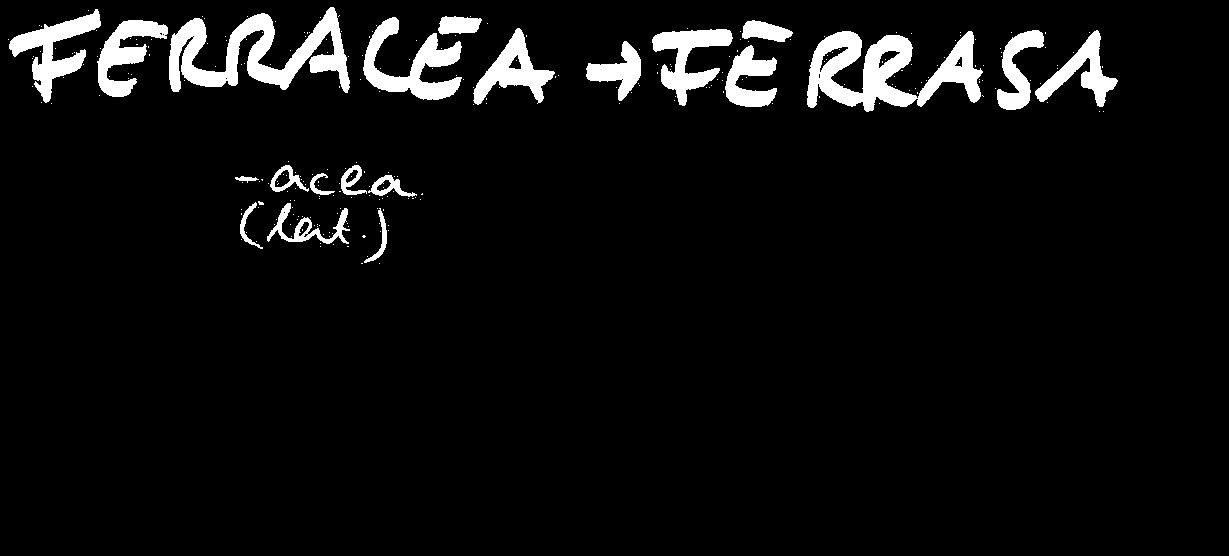 FERRACEA → FERRASA
-acea
(lat.)